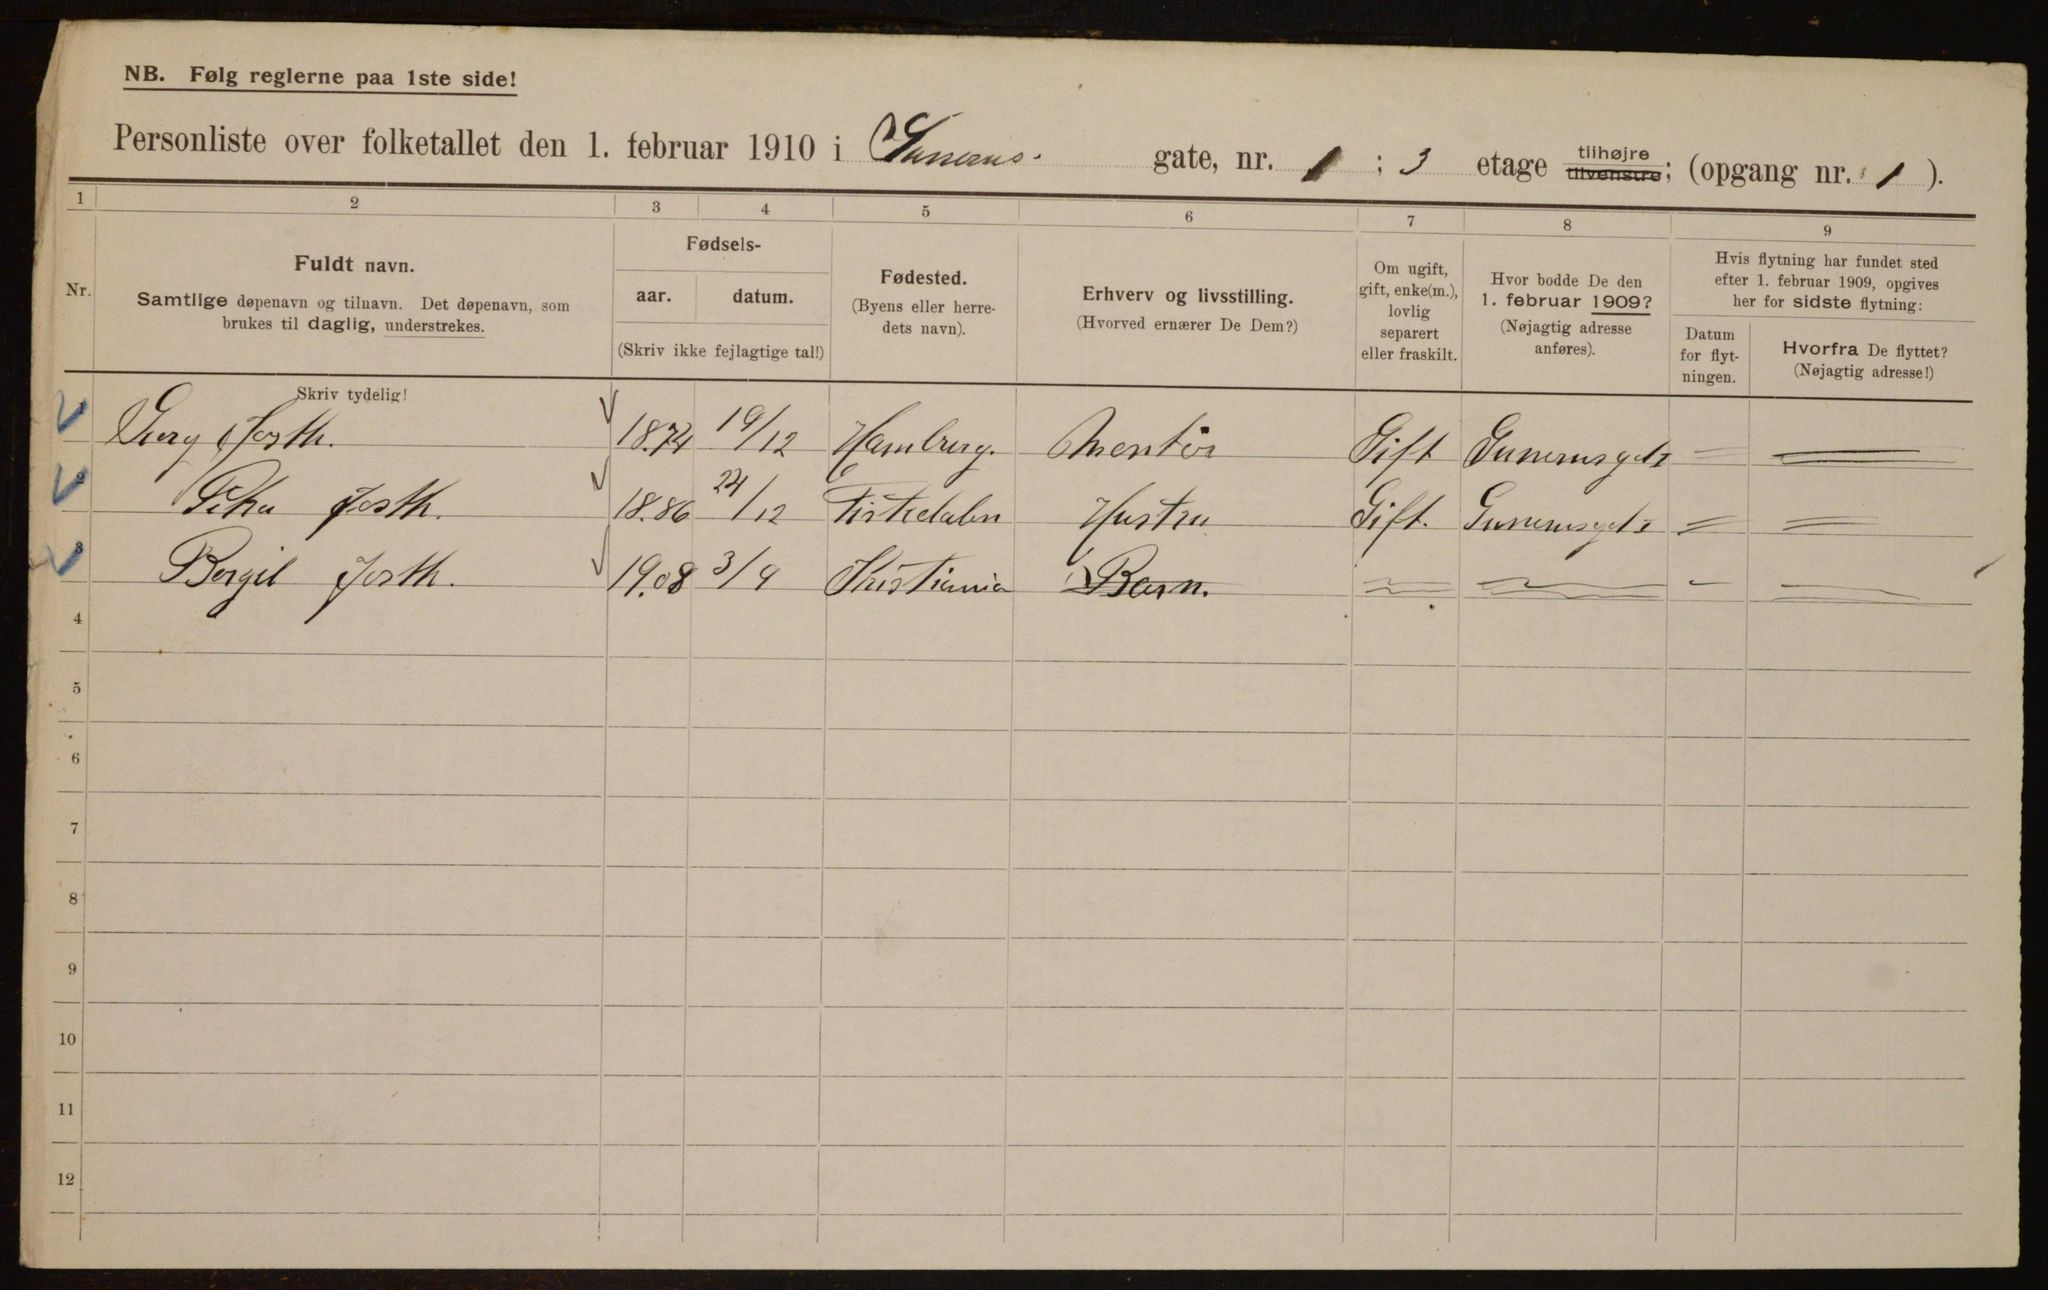 NB. Følg reglerne paa 1ste side!
Personliste over folketallet den 1. februar 1910 i Gunerus. gate, nr. 1 ; 3 etage tilhøjre tilvenstre; (opgang nr. 1 ).
1 2 3 4 5 6 7 8 9
Nr.
Fuldt navn.
Samtlige døpenavn og tilnavn. Det døpenavn, som
brukes til daglig, understrekes.
Skriv tydelig!
Fødsels-
aar. datum.
(Skriv ikke fejlagtige tal!)
Fødested.
(Byens eller herre-
dets navn).
Erhverv og livsstilling.
(Hvorved ernærer De Dem?)
Om ugift,
gift, enke(m.),
lovlig
separert
eller fraskilt.
Hvor bodde De den
1. februar 1909?
(Nøjagtig adresse
anføres).
Hvis flytning har fundet sted
efter 1. februar 1909, opgives
her for sidste flytning:
Datum
for flyt-
ningen.
Hvorfra De flyttet?
(Nøjagtig adresse!)
1 Josth. 1874 19/12 Hamburg. Montør Gift Gunerusgt 1 = =
2 Josth. 18.86 24/12 Tistedalen Hustru Gift. Gunerusgt 1 = =
3 Bergit Josth. 19.08 3/9 Kristiania Barn. - - - -
4
5
6
7
8
9
10
11
12